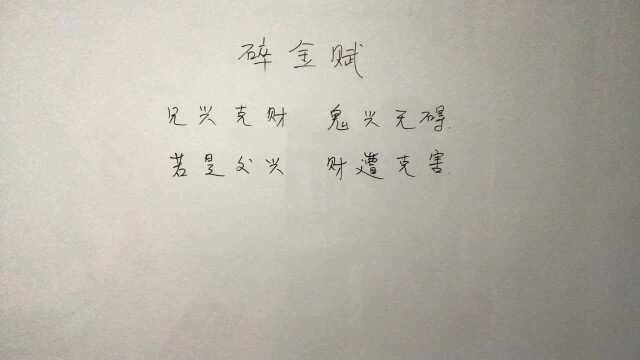 碎金赋
兄兴克财 鬼兴无碍.
若是父兴 财遭克害.